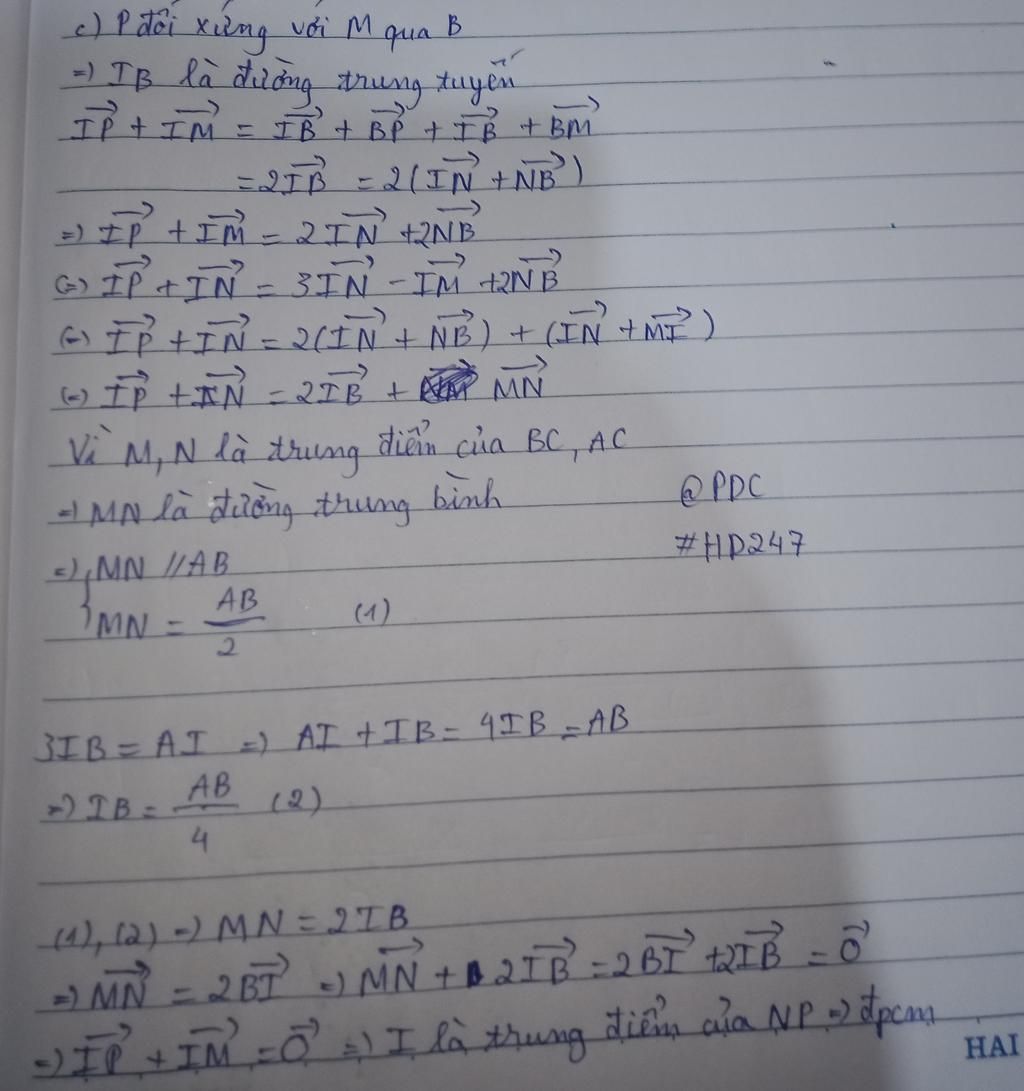 c) P đối xứng với M qua B
=) IB là đường trung tuyến
$\overrightarrow{IP} + \overrightarrow{IM} = \overrightarrow{IB} + \overrightarrow{BP} + \overrightarrow{IB} + \overrightarrow{BM}$
$= 2\overrightarrow{IB} = 2(\overrightarrow{IN} + \overrightarrow{NB})$
=) $\overrightarrow{IP} + \overrightarrow{IM} = 2\overrightarrow{IN} + 2\overrightarrow{NB}$
(=) $\overrightarrow{IP} + \overrightarrow{IN} = 3\overrightarrow{IN} - \overrightarrow{IM} + 2\overrightarrow{NB}$
(=) $\overrightarrow{IP} + \overrightarrow{IN} = 2(\overrightarrow{IN} + \overrightarrow{NB}) + (\overrightarrow{IN} + \overrightarrow{MI})$
(=) $\overrightarrow{IP} + \overrightarrow{IN} = 2\overrightarrow{IB} + \overrightarrow{MN}$
Vì M, N là trung điểm của BC, AC
=) MN là đường trung bình @PDC
#HD247
=) { MN // AB
MN = $\frac{AB}{2}$ (1)
3IB = AI =) AI + IB = 4IB = AB
=) IB = $\frac{AB}{4}$ (2)
(1), (2) =) MN = 2IB
=) $\overrightarrow{MN} = 2\overrightarrow{BI}$ =) $\overrightarrow{MN} + 2\overrightarrow{IB} = 2\overrightarrow{BI} + 2\overrightarrow{IB} = \overrightarrow{0}$
=) $\overrightarrow{IP} + \overrightarrow{IM} = \overrightarrow{0}$ =) I là trung điểm của NP =) đpcm
HAI